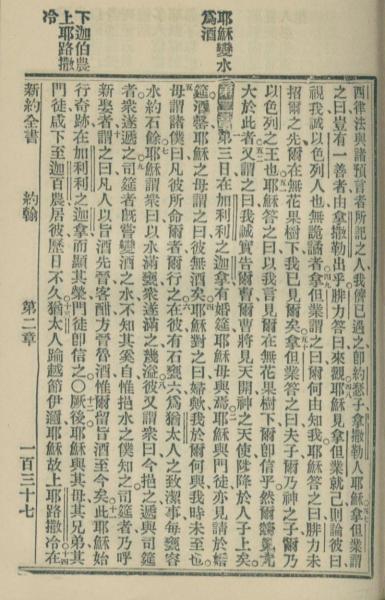 耶穌變水
爲酒
下迦伯農
上耶路撒
冷
西律法與諸預言者所記之人我儕已遇之卽約瑟子拿撒勒人耶穌拿但業謂
之曰豈有一善者由拿撒勒出乎腓力答曰來觀耶穌見拿但業就己則論彼曰
視我誠以色列人也無詭譎者拿但業謂之曰爾何由知我耶穌答之曰腓力未
招爾之先爾在無花果樹下我已見爾矣拿但業答之曰夫子爾乃神之子爾乃
以色列之王也耶穌答之曰以我言見爾在無花果樹下爾卽信乎然爾將見
大於此者又謂之曰我誠實告爾曹爾曹將見天開神之天使陟降於人子上矣
第二章第三日在加利利之迦拿有婚筵耶穌母與焉耶穌與門徒亦見請於婚
筵酒罄耶穌之母謂之曰彼無酒矣耶穌對之曰婦歟我於爾何與我時未至也
母謂諸僕曰凡彼所命爾者爾行之在彼有石甕六爲猶太人之致潔事每甕容
水約石餘耶穌謂衆曰以水滿甕衆遂滿之幾溢彼又謂衆曰今挹之遞與司筵
者衆遂遞之司筵者旣嘗變酒之水不知其奚自惟挹水之僕知之司筵者乃呼
新娶者謂之曰凡人以旨酒先晉客酣方晉魯酒惟爾留旨酒至今矣此耶穌始
行奇跡在加利利之迦拿而顯其榮門徒卽信之〇厥後耶穌與其母其兄弟其
門徒咸下至迦百農居彼歷日不久猶太人踰越節伊邇耶穌故上耶路撒冷在
新約全書 約翰 第二章 一百三十七